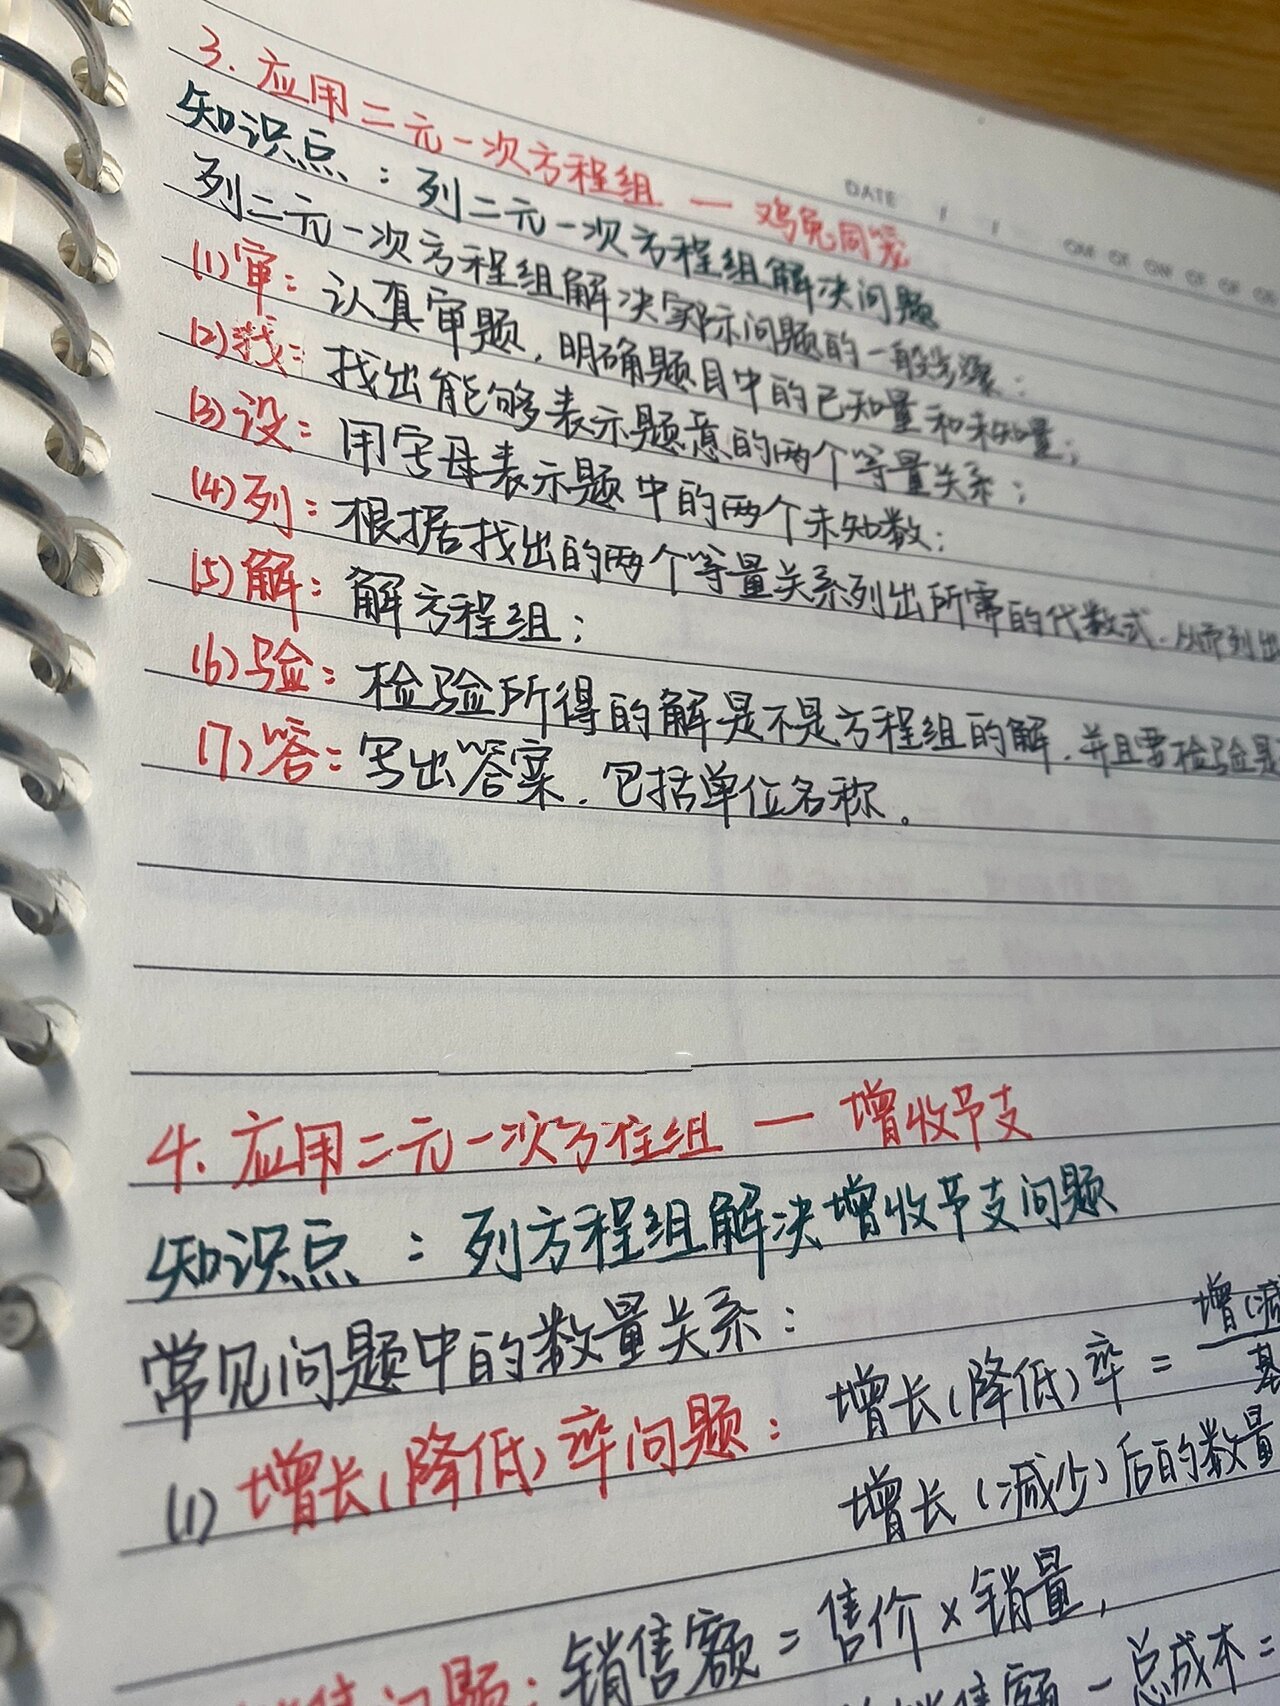 DATE / /
3. 应用二元一次方程组 — 鸡兔同笼
知识点：列二元一次方程组解决问题
列二元一次方程组解决实际问题的一般步骤：
(1)审：认真审题，明确题目中的已知量和未知量；
(2)找：找出能够表示题意的两个等量关系；
(3)设：用字母表示题中的两个未知数；
(4)列：根据找出的两个等量关系列出所需的代数式，从而列出
(5)解：解方程组；
(6)验：检验所得的解是不是方程组的解，并且要检验是
(7)答：写出答案，包括单位名称。
4. 应用二元一次方程组 — 增收节支
知识点：列方程组解决增收节支问题
常见问题中的数量关系：
(1)增长(降低)率问题：增长(降低)率 = 增(减
基
增长(减少)后的数量
售问题：销售额 = 售价×销量，
销售额 - 总成本 =